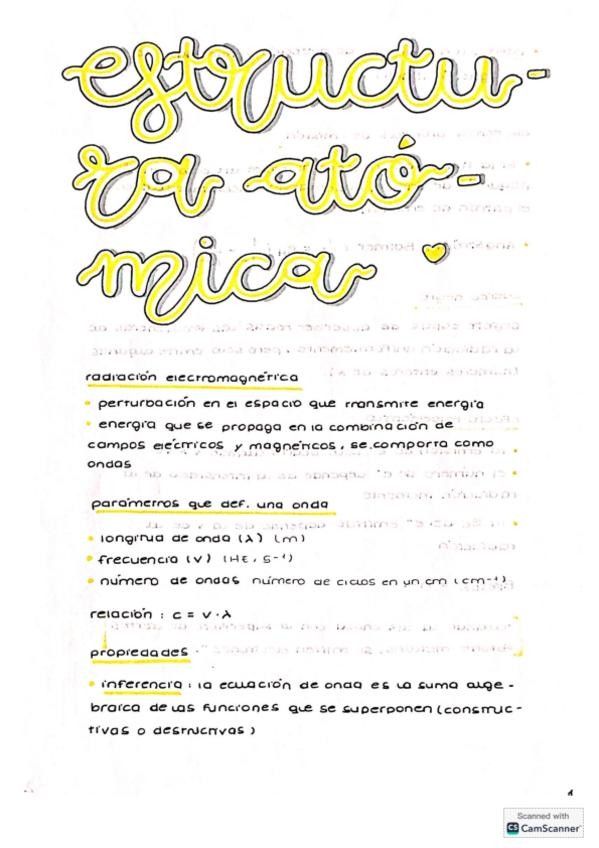 estructu-
ra ató-
mica
radiación electromagnética
• perturbación en el espacio que transmite energía
• energía que se propaga en la combinación de
campos eléctricos y magnéticos, se comporta como
ondas
parámetros que def. una onda
• longitud de onda (λ) (m)
• frecuencia (ν) (Hz, s⁻¹)
• número de ondas número de ciclos en un cm (cm⁻¹)
relación : c = ν·λ
propiedades
• inferencia : la ecuación de onda es la suma alge-
braica de las funciones que se superponen (construc-
tivas o destructivas)
1
Scanned with
CS CamScanner